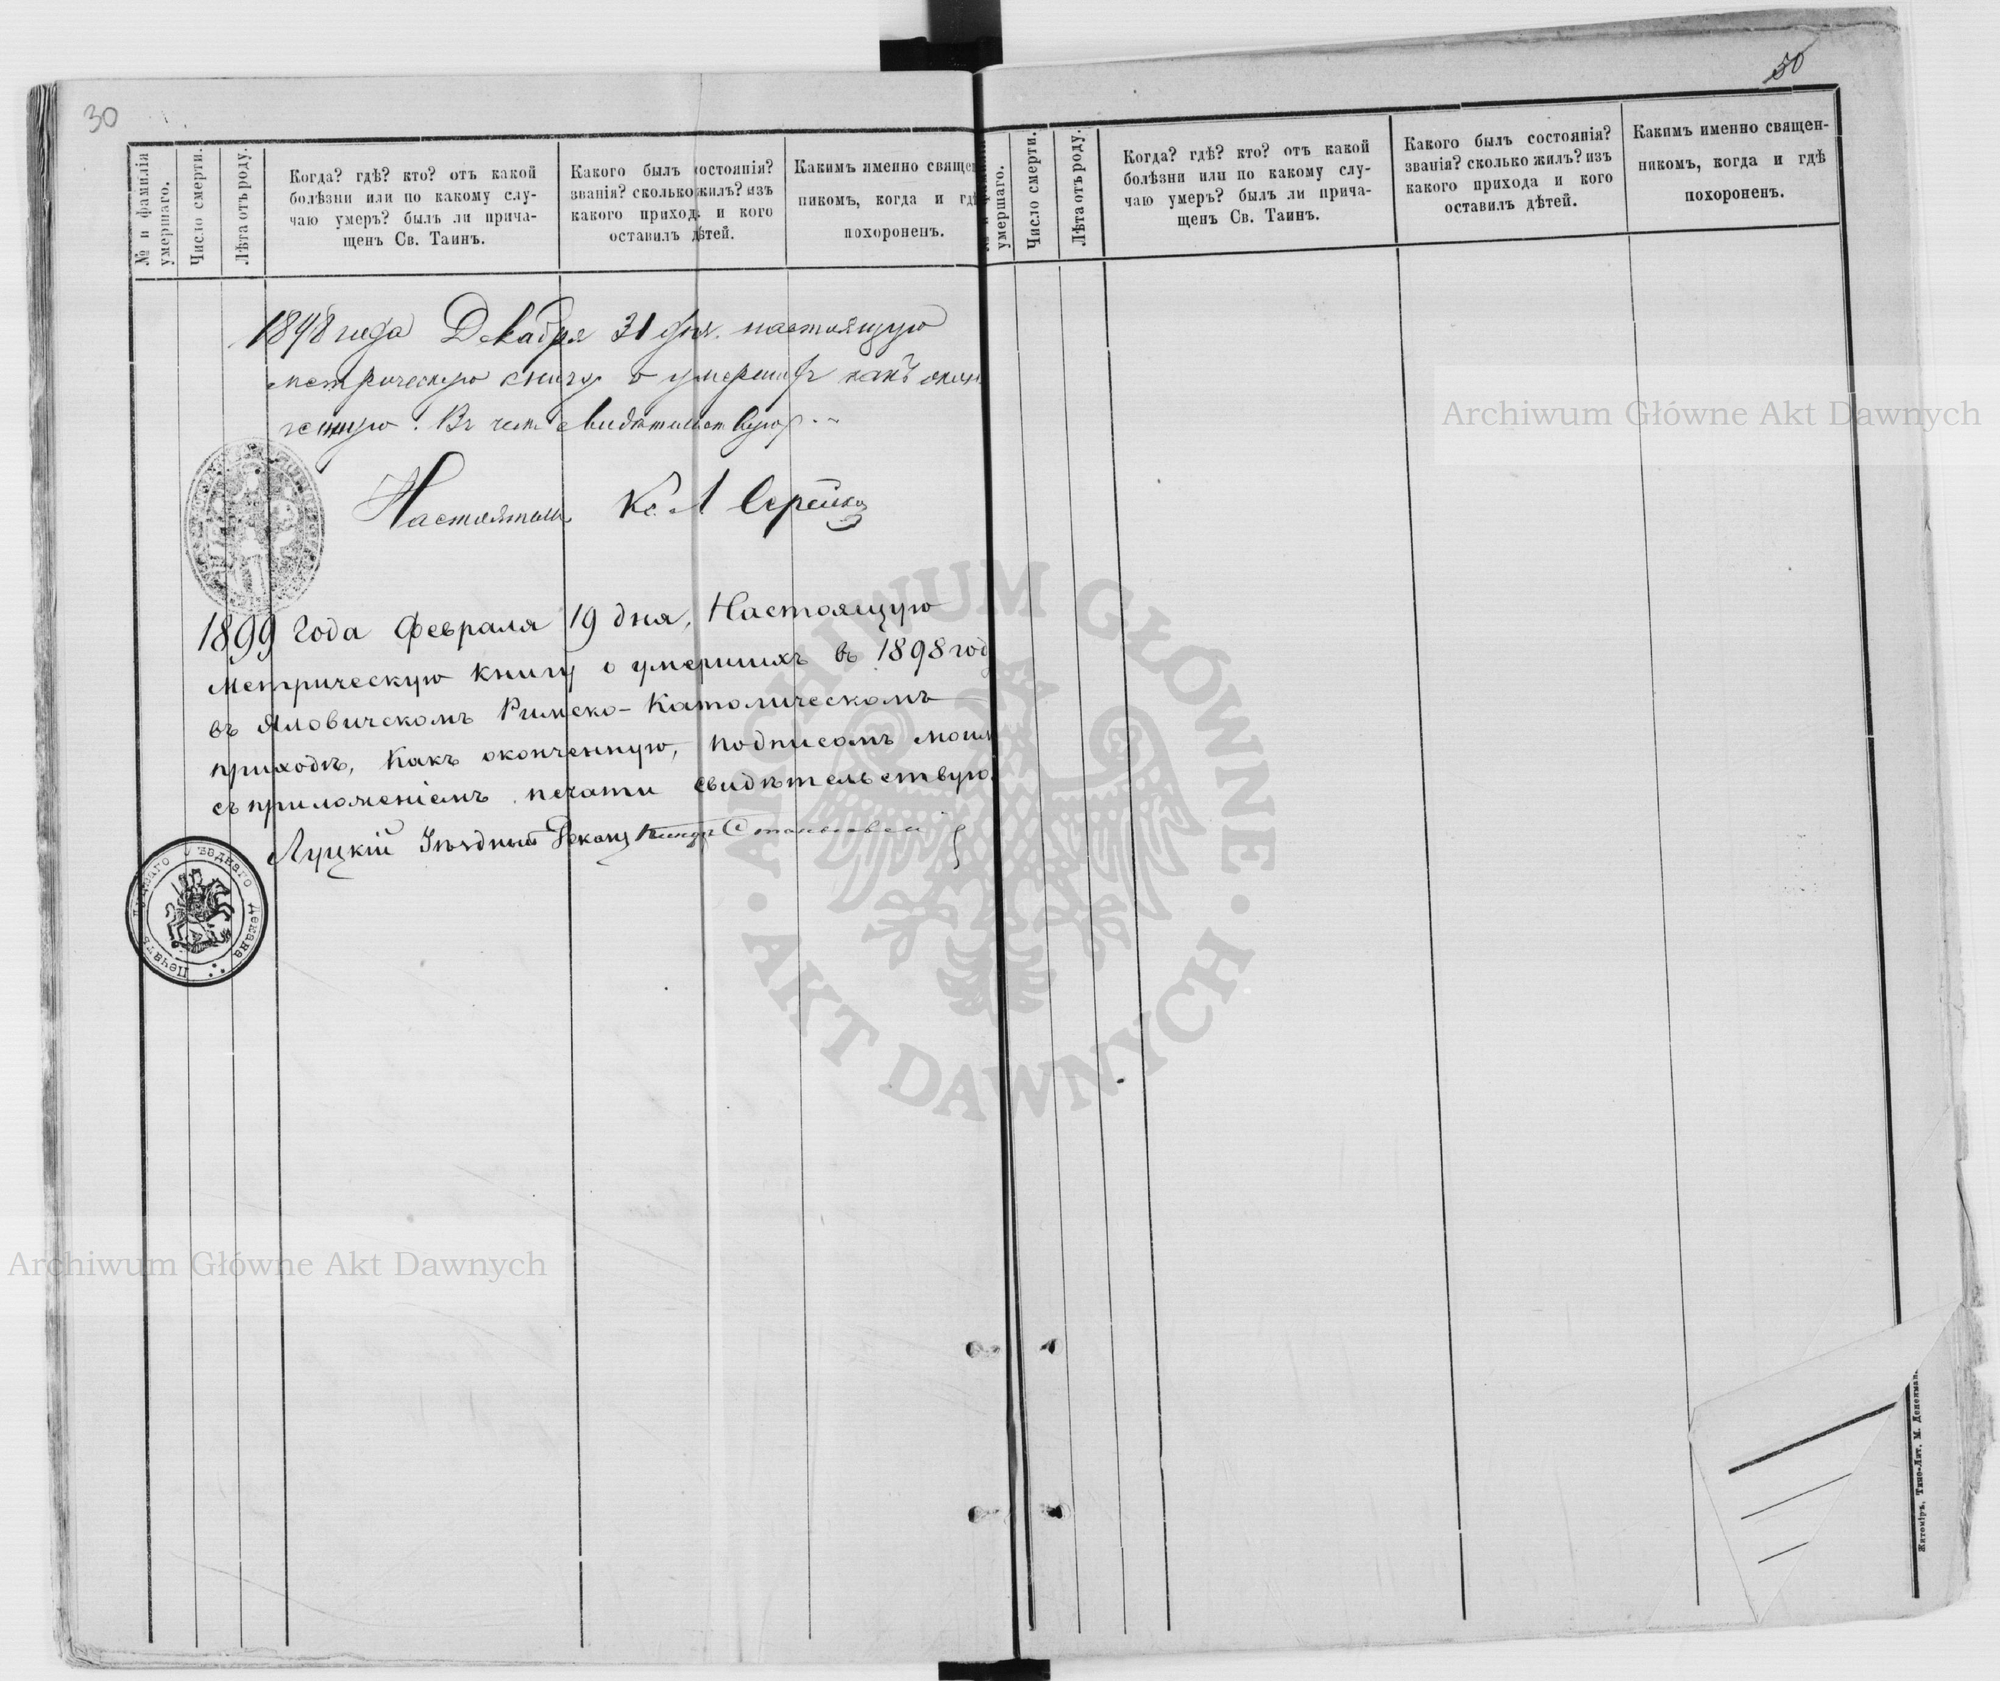 30
№ и фамилія
умершаго.
Число смерти.
Лѣта отъ роду.
Когда? гдѣ? кто? отъ какой
болѣзни или по какому слу-
чаю умеръ? былъ ли прича-
щенъ Св. Таинъ.
Какого былъ состоянія?
званія? сколько жилъ? изъ
какого приход. и кого
оставилъ дѣтей.
Какимъ именно свяще
никомъ, когда и гдѣ
похороненъ.
1898 года Декабря 31 дня. настоящую
метрическую книгу о умершихъ какъ окон
ченную. Въ чемъ свидѣтельствую.
Настоятель Кс. Л
1899 года Февраля 19 дня, Настоящую
Метрическую книгу о умершихъ въ 1898 год
въ Яловичскомъ Римско-Католическомъ
приходѣ, какъ оконченную, подписомъ моим
съ приложеніемъ печати свидѣтельствую.
Луцкій Уѣздный Деканъ
Печать Луцкаго Уѣзднаго Декана
50
умершаго.
Число смерти.
Лѣта отъ роду.
Когда? гдѣ? кто? отъ какой
болѣзни или по какому слу-
чаю умеръ? былъ ли прича-
щенъ Св. Таинъ.
Какого былъ состоянія?
званія? сколько жилъ? изъ
какого прихода и кого
оставилъ дѣтей.
Какимъ именно священ-
никомъ, когда и гдѣ
похороненъ.
Житоміръ, Типо-Лит. М. Дененман.
Archiwum Główne Akt Dawnych
ARCHIWUM GŁÓWNE
AKT DAWNYCH
Archiwum Główne Akt Dawnych